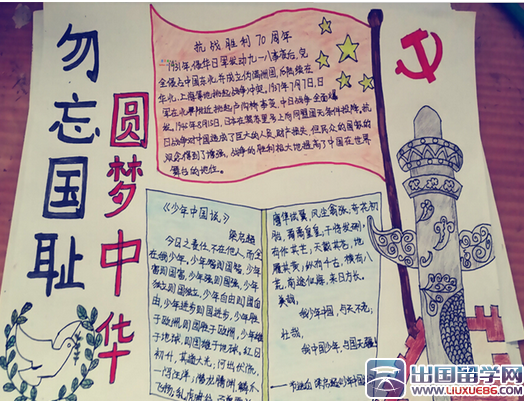 勿忘国耻
圆梦中华
抗战胜利70周年
1931年,侵华日军发动九一八事变后,完
全侵占中国东北,并成立伪满洲国,后陆续在
华北、上海等地挑起战争冲突,1937年7月7日,日
军在北平附近挑起卢沟桥事变,中日战争全面爆
发,1945年8月15日,日本在
日战争对中国造成了巨大的人员、财产损失,但民众的国家的
观念得到了增强,战争的胜利极大地提高了中国在世界
舞台的地位。
《少年中国说》
梁启超
今日之责任,不在他人,而全
在我少年,少年智则国智,少年
富则国富,少年强则国强,少年
独立则国独立,少年自由则国自
由,少年进步则国进步,少年胜
于欧洲,则国胜于欧洲,少年雄
于地球,则国雄于地球,红日
初升,其道大光,河出伏流,
一泻汪洋;潜龙腾渊,鳞爪
飞扬;乳虎啸谷
鹰隼试翼,风尘翕张,奇花初
胎,矞矞皇皇,干将发硎,
有作其芒,天戴其苍,地
履其黄,纵有千古,横有八
荒,前途似海,来日方长。
美哉,
我少年中国,与天不老,
壮哉,
我中国少年,与国无疆!
出国留学网
WWW.LIUXUE86.COM